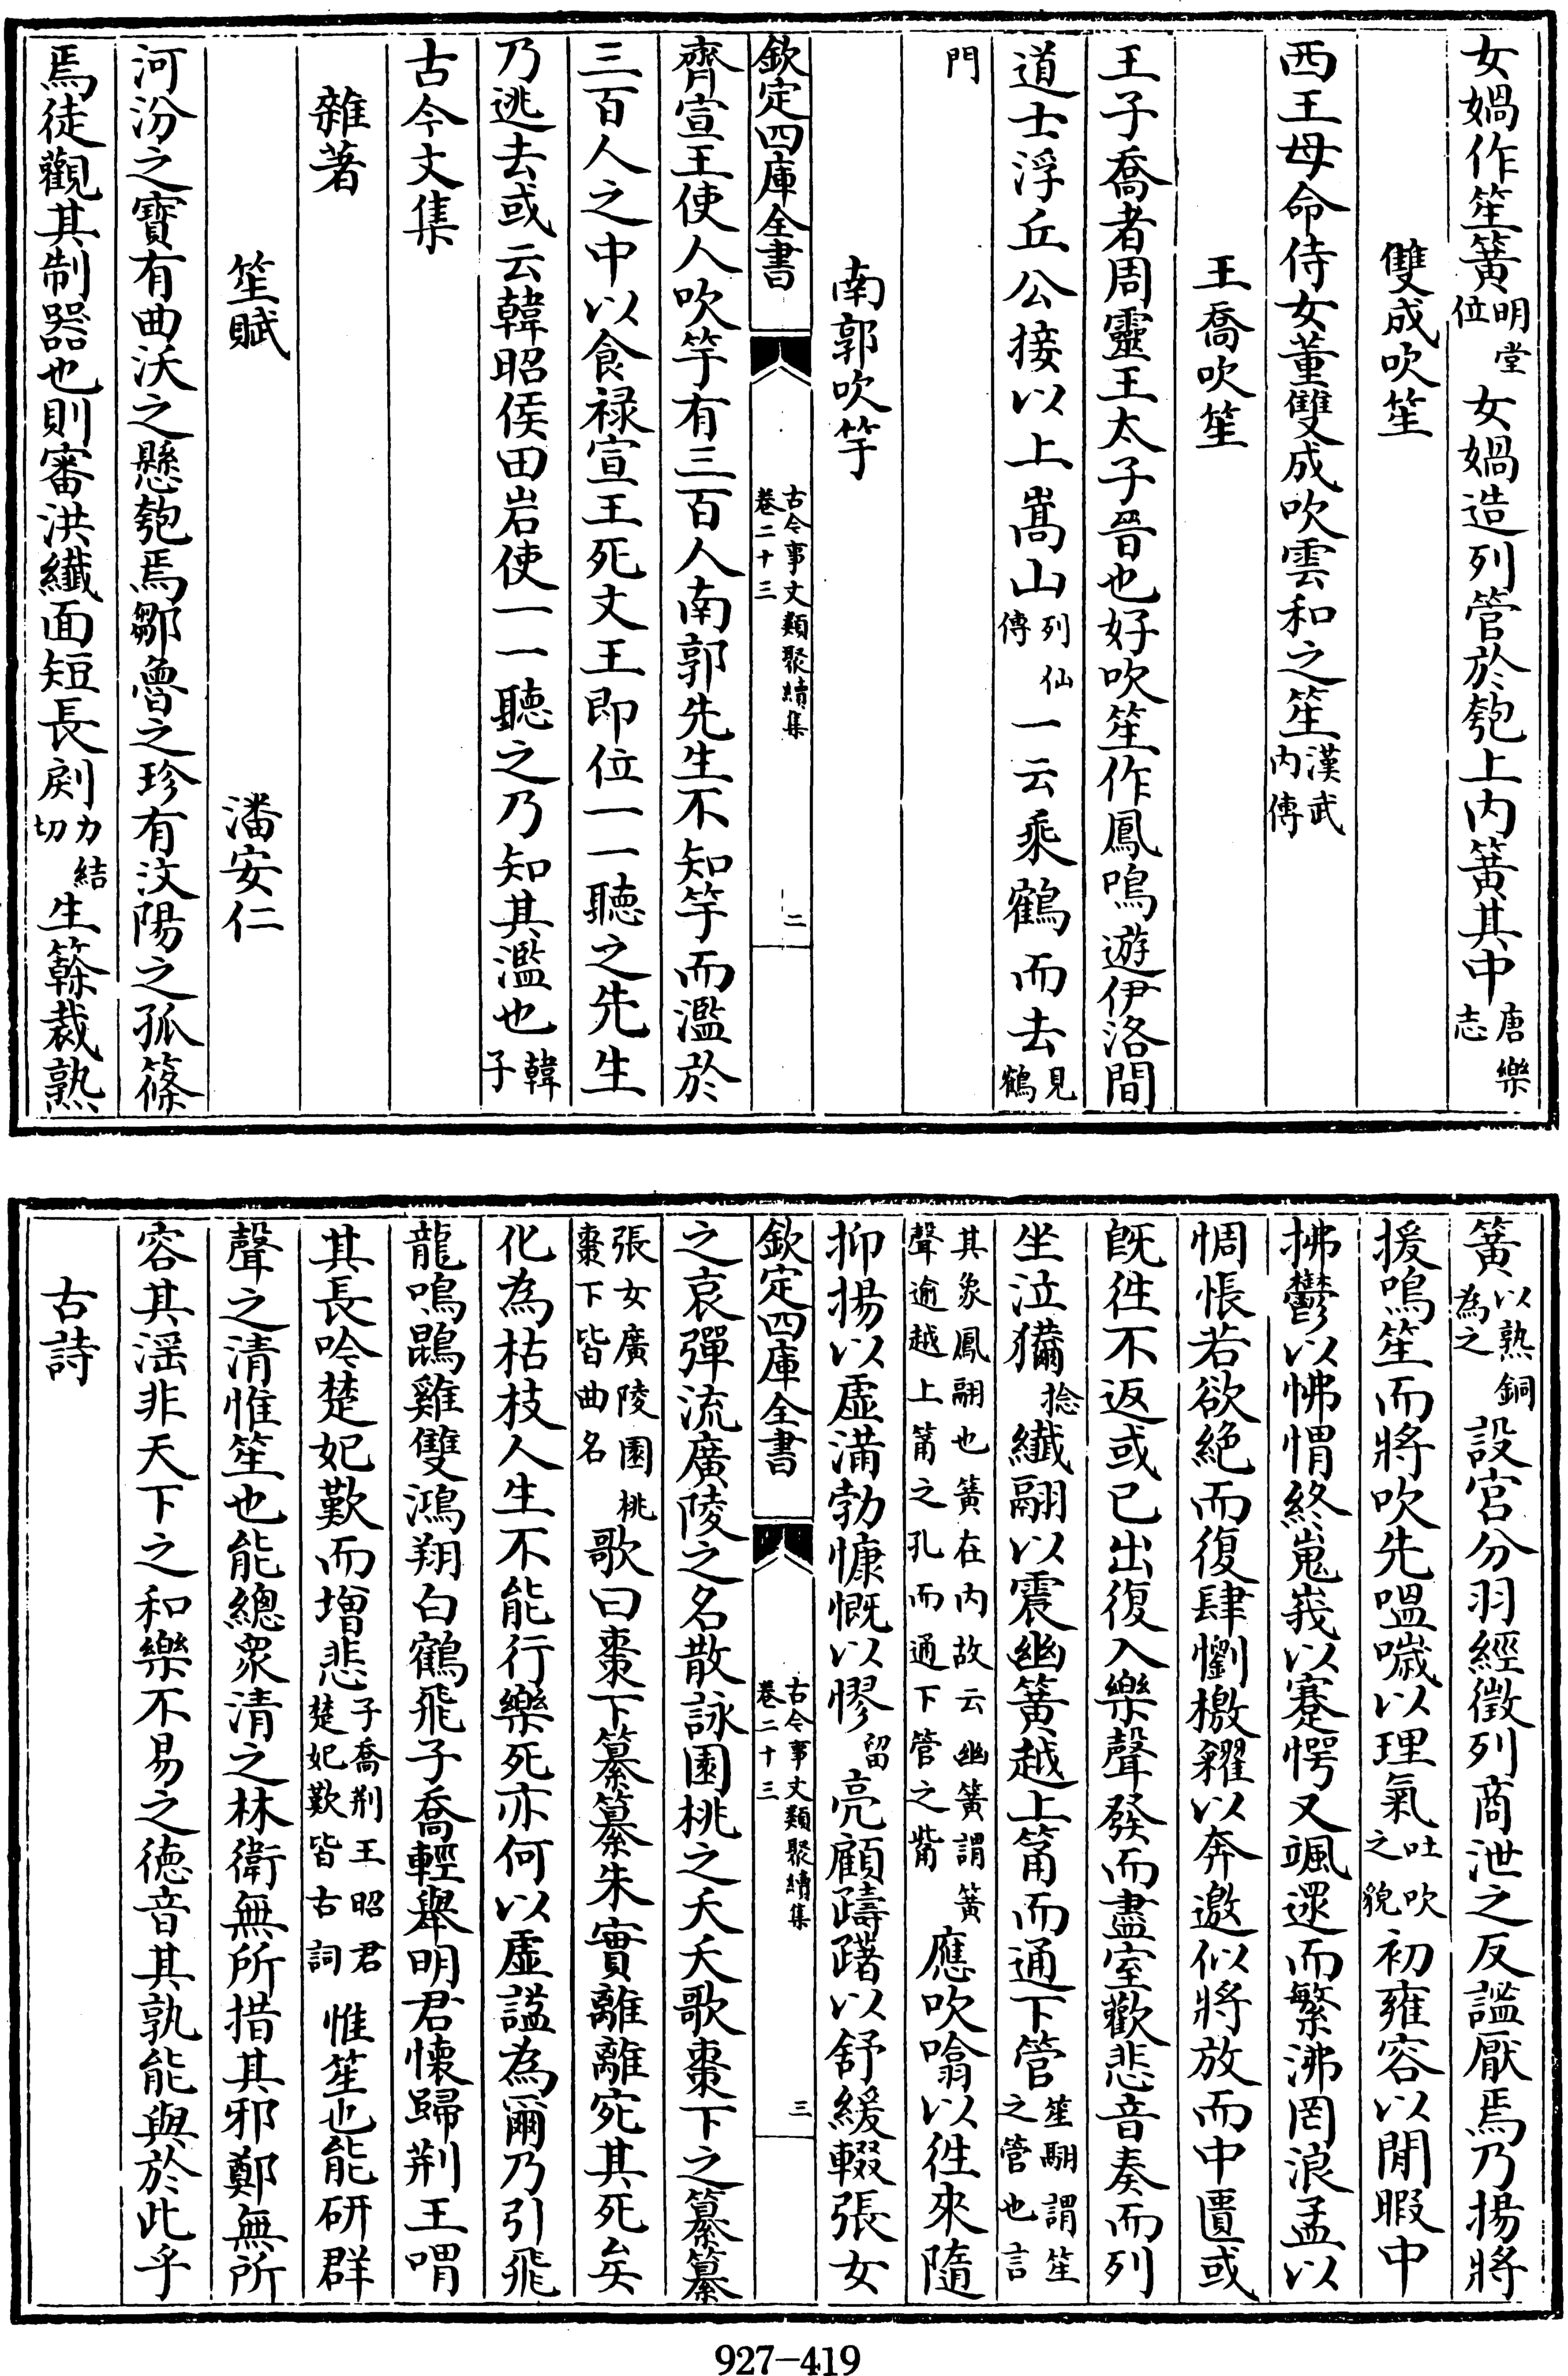 女媧作笙簧明堂位女媧造列管於匏上内簧其中唐樂志
雙成吹笙
西王母命侍女董雙成吹雲和之笙漢武内傳
王喬吹笙
王子喬者周靈王太子晉也好吹笙作鳳鳴遊伊洛間
道士浮丘公接以上嵩山列仙傳一云乘鶴而去見鶴
門
南郭吹竽
欽定四庫全書 古今事文類聚續集卷二十三 二
齊宣王使人吹竽有三百人南郭先生不知竽而濫於
三百人之中以食禄宣王死文王即位一一聽之先生
乃逃去或云韓昭侯田岩使一一聽之乃知其濫也韓子
古今文集
雜著
笙賦 潘安仁
河汾之寳有曲沃之懸匏焉鄒魯之珍有汶陽之孤篠
焉徒觀其制器也則審洪纖面短長㓼力結切生簳裁熟
簧以熟銅為之設宫分羽經徵列商泄之反謐厭焉乃揚將
援鳴笙而將吹先嗢噦以理氣吐吹之貌初雍容以閒暇中
拂鬱以怫愲終嵬峩以蹇愕又颯遝而繁沸罔浪孟以
惆悵若欲絶而復肆懰檄糴以奔邀似將放而中匱或
旣徃不返或已出復入樂聲發而盡室歡悲音奏而列
坐泣擫捻纎翮以震幽簧越上筩而通下管笙翮謂笙之管也言
其象鳳翮也簧在内故云幽簧謂簧聲逾越上筩之孔而通下管之觜應吹噏以徃來隨
抑揚以虚滿勃慷慨以憀留亮顧躊躇以舒緩輟張女
欽定四庫全書 古今事文類聚續集卷二十三 三
之哀彈流廣陵之名散詠園桃之夭夭歌棗下之纂纂
張女廣陵園桃棗下皆曲名歌曰棗下纂纂朱實離離宛其死矣
化為枯枝人生不能行樂死亦何以虚諡為爾乃引飛
龍鳴鵾雞雙鴻翔白鶴飛子喬輕舉明君懐歸荆王喟
其長吟楚妃歎而增悲子喬荆王昭君楚妃歎皆古詞惟笙也能研群
聲之清惟笙也能總衆清之林衛無所措其邪鄭無所
容其滛非天下之和樂不易之德音其孰能與於此乎
古詩
927-419